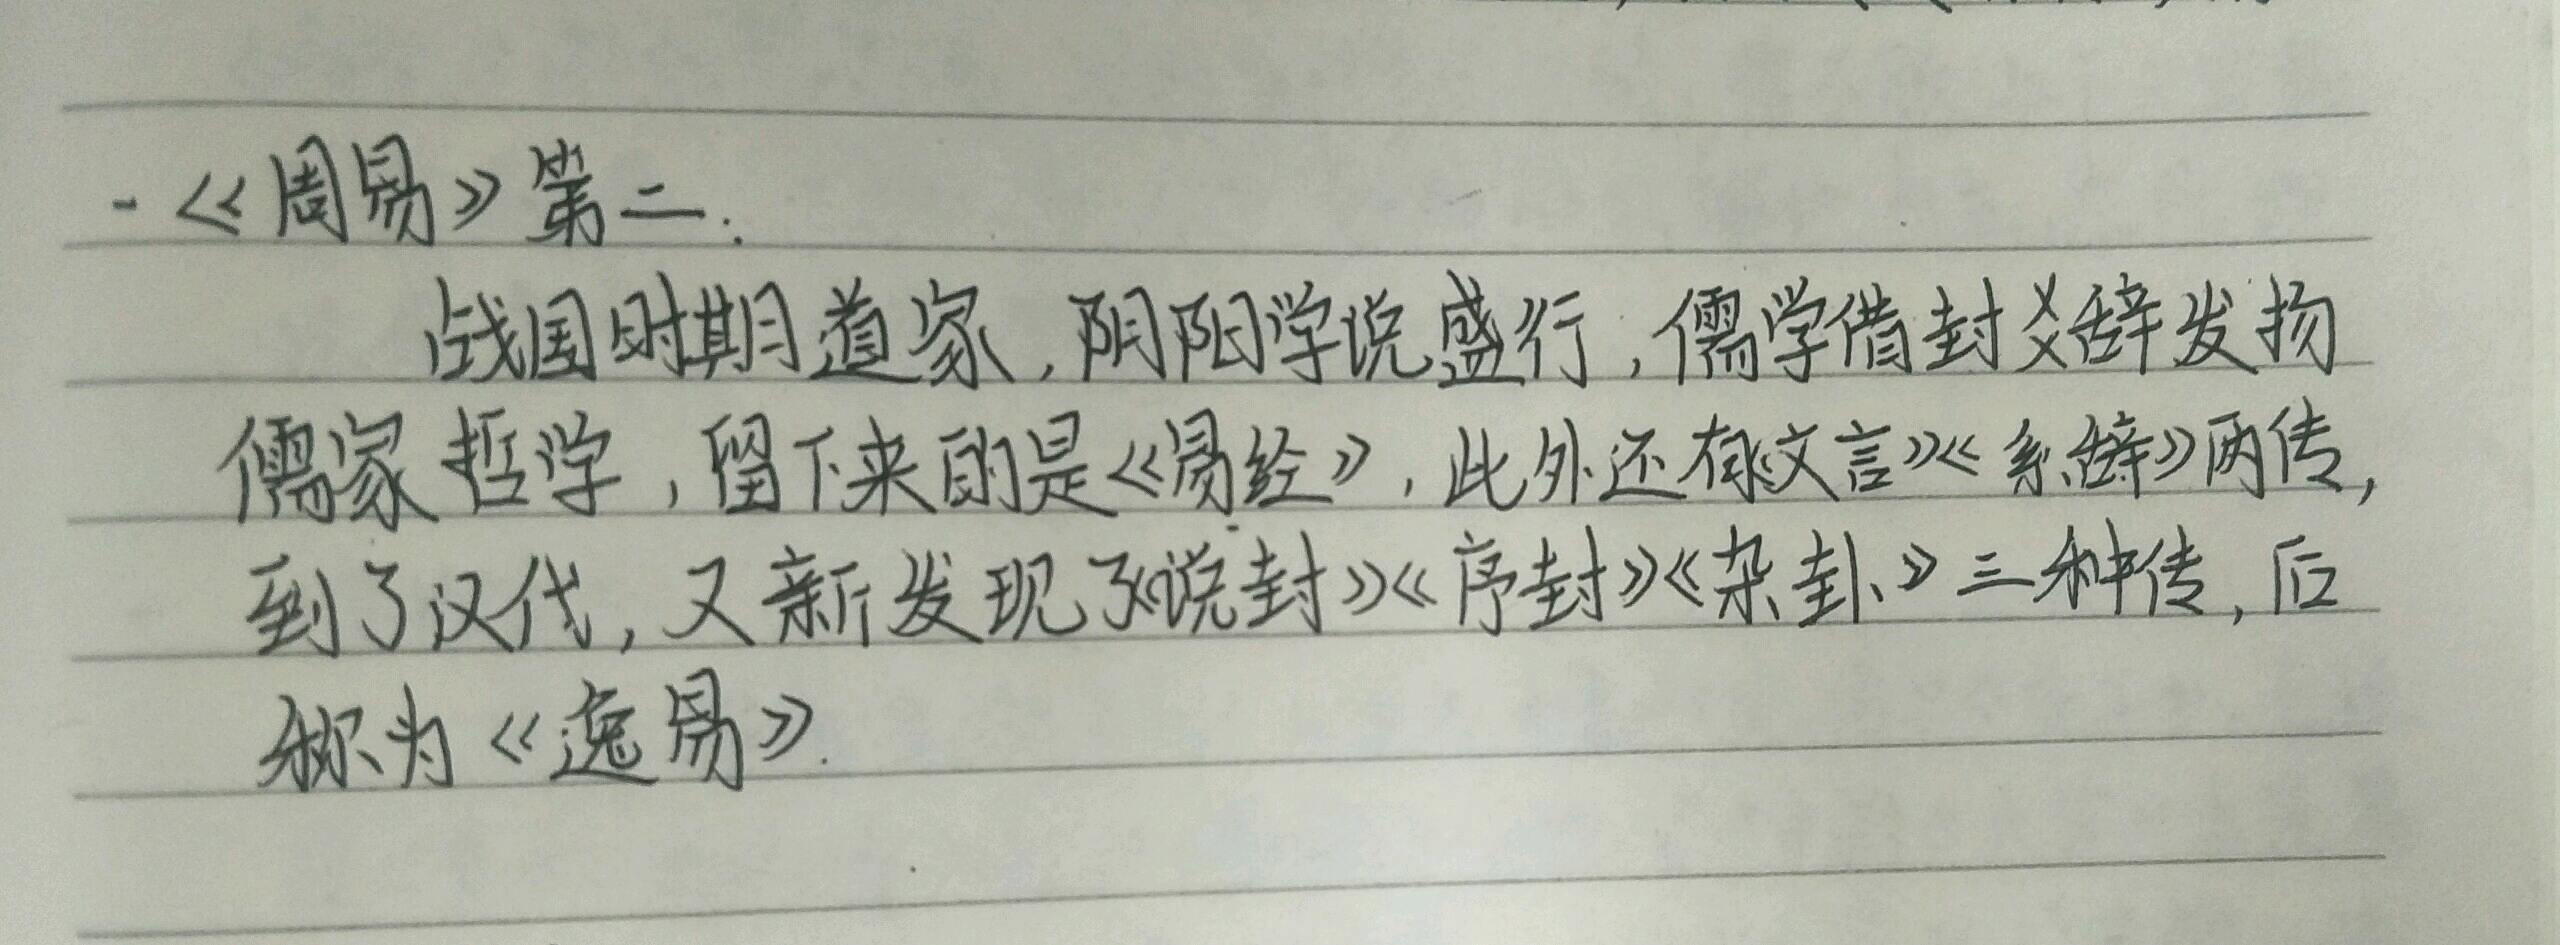 -《周易》第二.
战国时期道家,阴阳学说盛行,儒学借封爻辞发扬
儒家哲学,留下来的是《易经》,此外还有《文言》《系辞》两传,
到了汉代,又新发现了《说封》《序封》《杂卦》三种传,后
称为《逸易》.